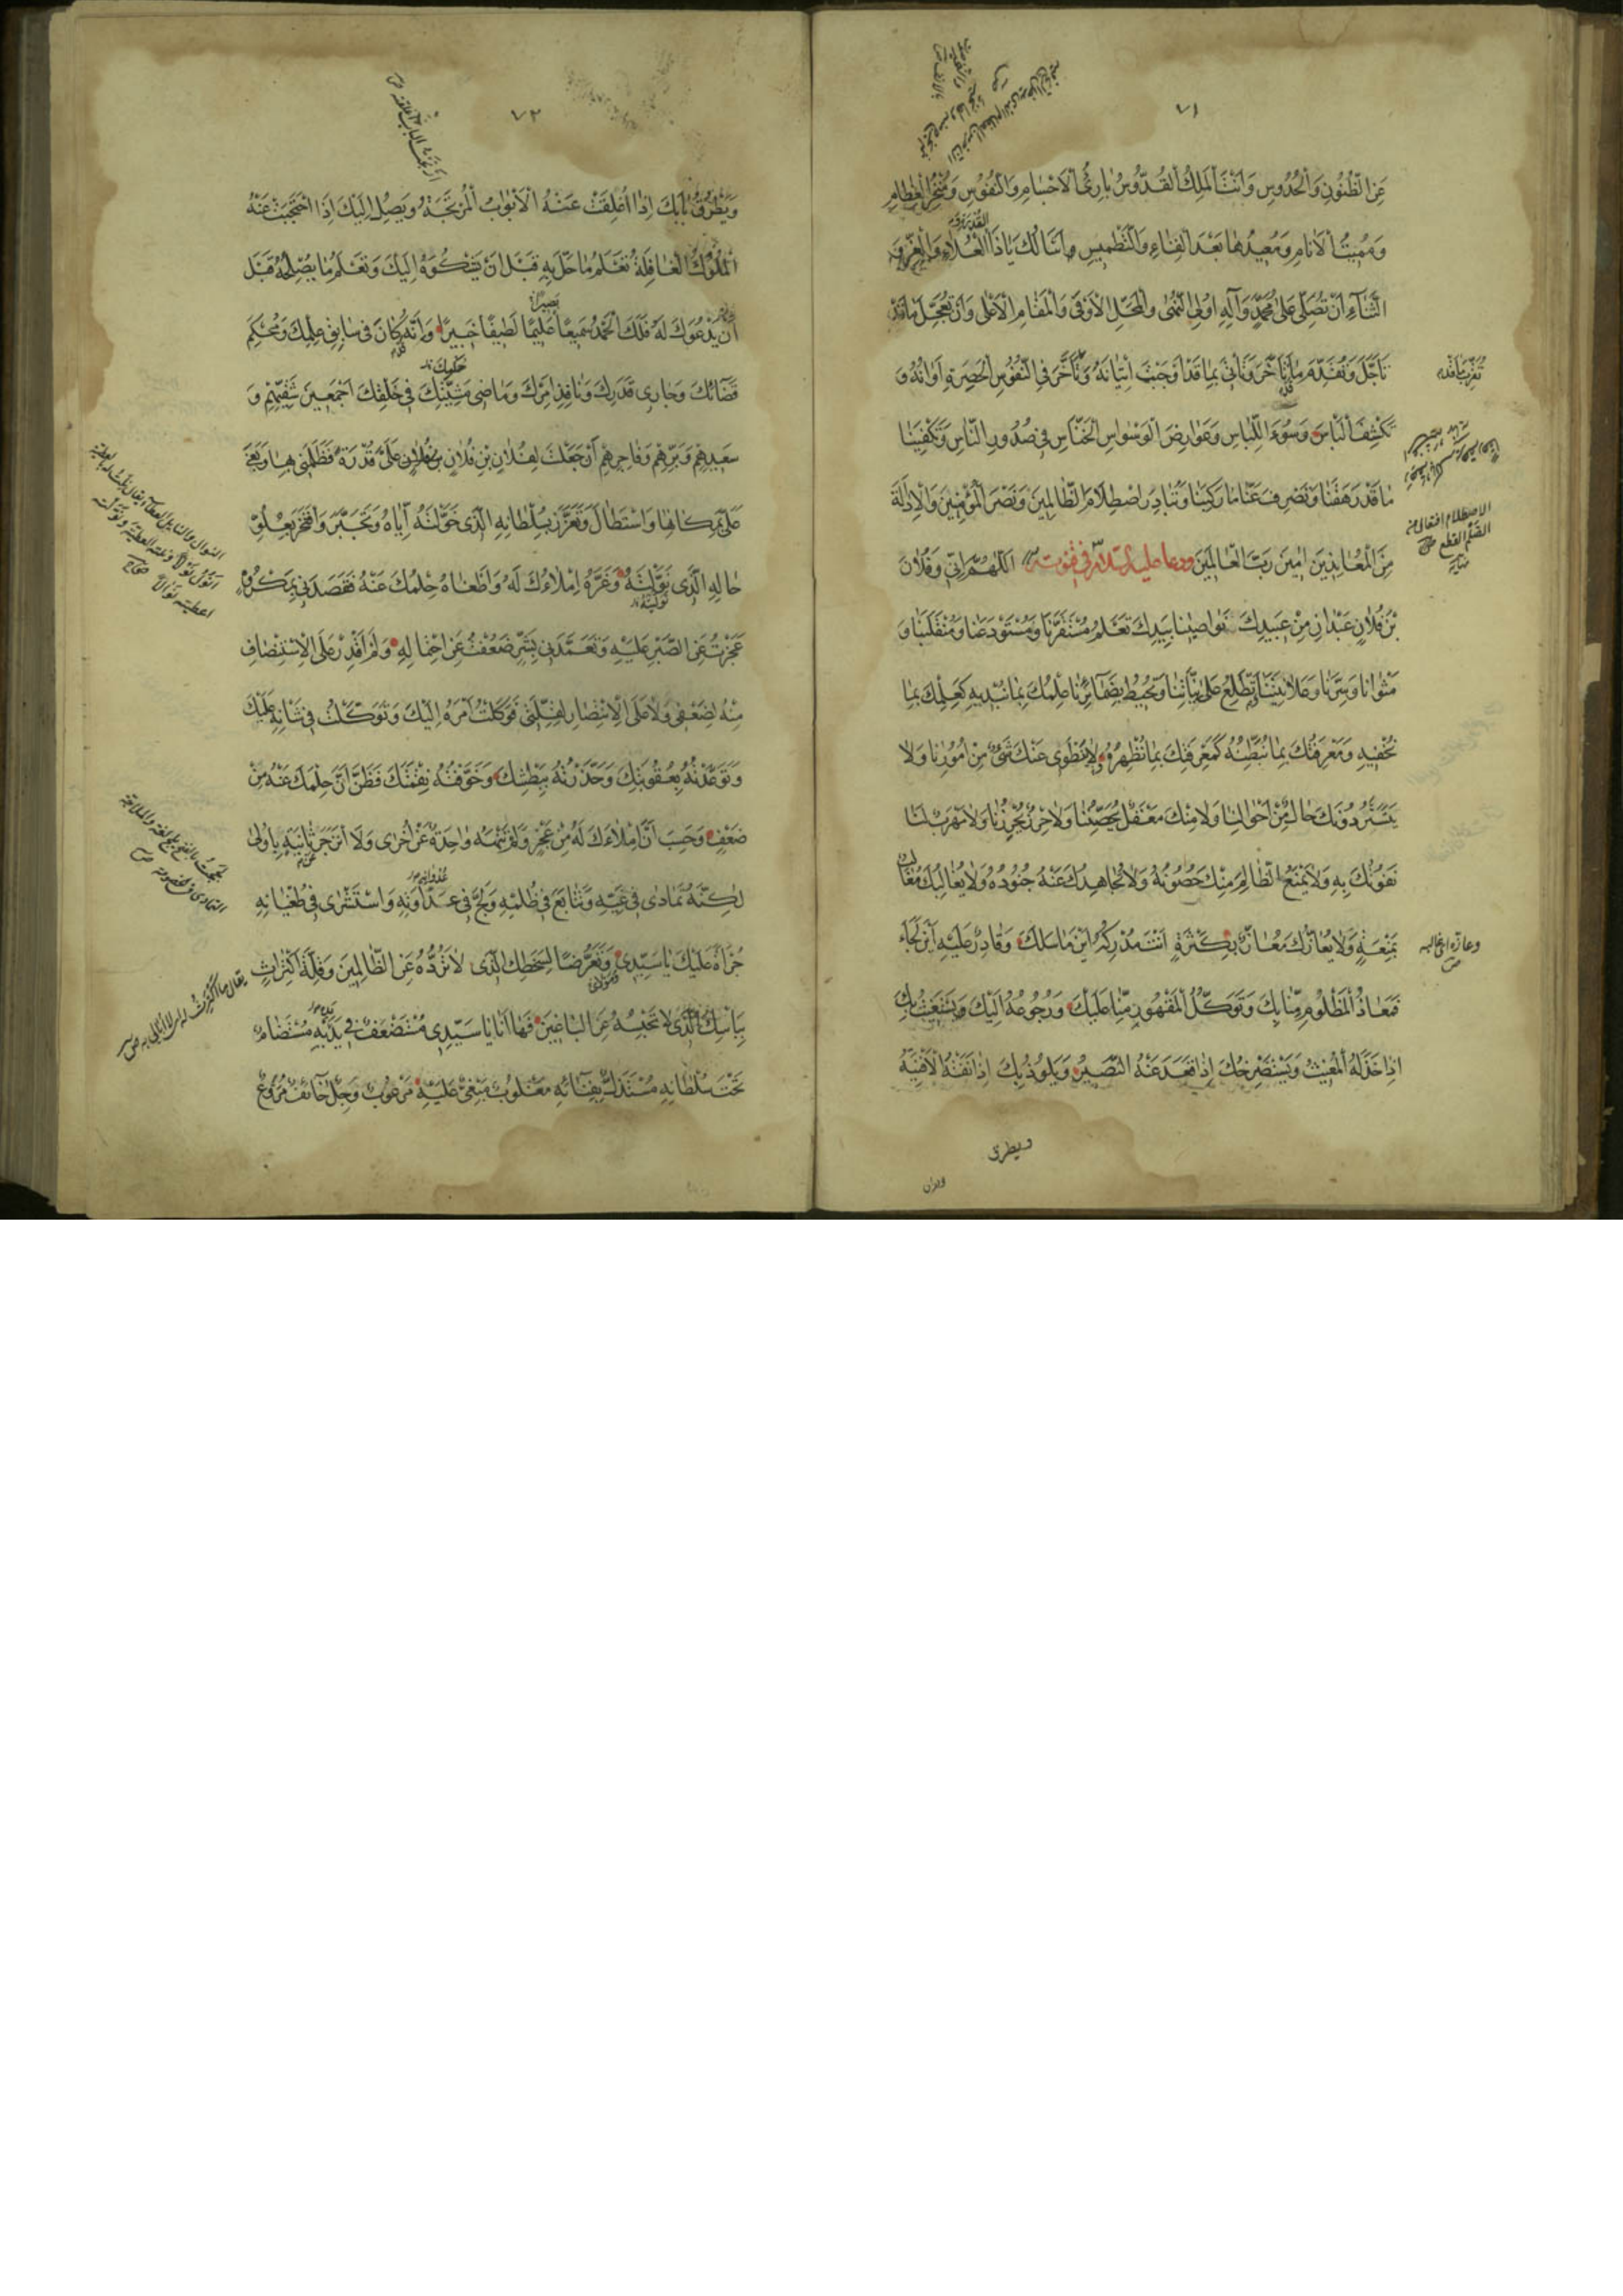 ٧١
عَنِ الظُّنُونِ وَالْحُدُوسِ وَأَنْتَ الْمَلِكُ الْقُدُّوسُ بَارِئُ الْأَجْسَامِ وَالنُّفُوسِ وَمُنْخِرُ الْعِظَامِ
وَمُمِيتُ الْأَنَامِ وَمُعِيدُهَا بَعْدَ الْفَنَاءِ وَالتَّطْمِيسِ وَأَسْأَلُكَ يَا ذَا الْعُلَاءِ وَالْعِزِّ وَ
الثَّنَاءِ أَنْ تُصَلِّيَ عَلَى مُحَمَّدٍ وَآلِهِ أُولِي النُّهَى وَالْمَحَلِّ الْأَوْفَى وَالْمَقَامِ الْأَعْلَى وَأَنْ تُعَجِّلَ مَا قَدْ
تَأَجَّلَ وَتُقَدِّمَ مَا تَأَخَّرَ وَتَأْتِيَ بِمَا قَدْ أَوْجَبْتَ إِتْيَانَهُ وَتَأَخَّرَ فِي النُّفُوسِ الْحَصِرَةِ أَوَانُهُ وَ
تَكْشِفَ الْبَأْسَ وَسُوءَ اللِّبَاسِ وَعَوَارِضَ الْوَسْوَاسِ الْخَنَّاسِ فِي صُدُورِ النَّاسِ وَتَكْفِيَنَا
مَا قَدْ رَهِقَنَا وَتَصْرِفَ عَنَّا مَا رَكِبَنَا وَتُبَادِرَ اصْطِلَامَ الظَّالِمِينَ وَنَصْرَ الْمُؤْمِنِينَ وَالْإِدَالَةَ
مِنَ الْمُعَانِدِينَ آمِينَ رَبَّ الْعَالَمِينَ ودعا عليه السلام في قنوته اللَّهُمَّ إِنِّي وَفُلَانَ
بْنَ فُلَانٍ عَبْدَانِ مِنْ عَبِيدِكَ نَوَاصِينَا بِيَدِكَ تَعْلَمُ مُسْتَقَرَّنَا وَمُسْتَوْدَعَنَا وَمُنْقَلَبَنَا وَ
مَثْوَانَا وَسِرَّنَا وَعَلَانِيَتَنَا تَطَّلِعُ عَلَى نِيَّاتِنَا وَتُحِيطُ بِضَمَائِرِنَا عِلْمُكَ بِمَا نُبْدِيهِ كَعِلْمِكَ بِمَا
نُخْفِيهِ وَمَعْرِفَتُكَ بِمَا نُبَطِّنُهُ كَمَعْرِفَتِكَ بِمَا نُظْهِرُهُ وَلَا يَنْطَوِي عَنْكَ شَيْءٌ مِنْ أُمُورِنَا وَلَا
يَسْتَتِرُ دُونَكَ حَالٌ مِنْ أَحْوَالِنَا وَلَا مِنْكَ مَعْقِلٌ يُحَصِّنُنَا وَلَا حِرْزٌ يُحْرِزُنَا وَلَا مَهْرَبَ لَنَا
نَفُوتُكَ بِهِ وَلَا يَمْنَعُ الظَّالِمَ مِنْكَ حُصُونُهُ وَلَا يُجَاهِدُكَ عَنْهُ جُنُودُهُ وَلَا يُغَالِبُكَ مُغَالِبٌ
بِمَنْعَةٍ وَلَا يُعَازُّكَ مُعَازٌّ بِكَثْرَةٍ أَنْتَ مُدْرِكُهُ أَيْنَ مَا سَلَكَ وَقَادِرٌ عَلَيْهِ أَيْنَ لَجَأَ
فَمَعَاذُ الْمَظْلُومِ مِنَّا بِكَ وَتَوَكُّلُ الْمَقْهُورِ مِنَّا عَلَيْكَ وَرُجُوعُهُ إِلَيْكَ وَيَسْتَغِيثُ بِكَ
إِذَا خَذَلَهُ الْمُغِيثُ وَيَسْتَصْرِخُكَ إِذَا قَعَدَ عَنْهُ النَّصِيرُ وَيَلُوذُ بِكَ إِذَا نَفَتْهُ الْأَفْنِيَةُ
ويطرق
الاصطلام افتعال من
الصلم القطع
٧٢
وَيَطْرُقُ بَابَكَ إِذَا أُغْلِقَتْ عَنْهُ الْأَبْوَابُ الْمُرْتَجَةُ وَيَصِلُ إِلَيْكَ إِذَا احْتَجَبَتْ عَنْهُ
الْمُلُوكُ الْغَافِلَةُ تَعْلَمُ مَا حَلَّ بِهِ قَبْلَ أَنْ يَشْكُوَهُ إِلَيْكَ وَتَعْلَمُ مَا يُصْلِحُهُ قَبْلَ
أَنْ يَدْعُوَكَ لَهُ فَلَكَ الْحَمْدُ سَمِيعًا عَلِيمًا لَطِيفًا خَبِيرًا وَأَنَّهُ كَانَ فِي سَابِقِ عِلْمِكَ وَمُحْكَمِ
قَضَائِكَ وَجَارِي قَدَرِكَ وَنَافِذِ أَمْرِكَ وَمَاضِي مَشِيَّتِكَ فِي خَلْقِكَ أَجْمَعِينَ شَقِيِّهِمْ وَ
سَعِيدِهِمْ وَبَرِّهِمْ وَفَاجِرِهِمْ أَنْ جَعَلْتَ لِفُلَانِ بْنِ فُلَانٍ عَلَيَّ قُدْرَةً فَظَلَمَنِي بِهَا وَبَغَى
عَلَيَّ بِمَكَانِهَا وَاسْتَطَالَ وَتَعَزَّزَ بِسُلْطَانِهِ الَّذِي خَوَّلْتَهُ إِيَّاهُ وَتَجَبَّرَ وَافْتَخَرَ بِعُلُوِّ
حَالِهِ الَّذِي نَوَّلْتَهُ وَغَرَّهُ إِمْلَاؤُكَ لَهُ وَأَطْغَاهُ حِلْمُكَ عَنْهُ فَقَصَدَنِي بِمَكْرُوهٍ
عَجَزْتُ عَنِ الصَّبْرِ عَلَيْهِ وَتَعَمَّدَنِي بِشَرٍّ ضَعُفْتُ عَنِ احْتِمَالِهِ وَلَمْ أَقْدِرْ عَلَى الْإِنْتِصَافِ
مِنْهُ لِضَعْفِي وَلَا عَلَى الْإِنْتِصَارِ لِقِلَّتِي فَوَكَلْتُ أَمْرَهُ إِلَيْكَ وَتَوَكَّلْتُ فِي شَأْنِهِ عَلَيْكَ
وَتَوَعَّدْتُهُ بِعُقُوبَتِكَ وَحَذَّرْتُهُ بِبَطْشِكَ وَخَوَّفْتُهُ نِقْمَتَكَ فَظَنَّ أَنَّ حِلْمَكَ عَنْهُ مِنْ
ضَعْفٍ وَحَسِبَ أَنَّ إِمْلَاءَكَ لَهُ مِنْ عَجْزٍ وَلَمْ تَنْهَهُ وَاحِدَةٌ عَنْ أُخْرَى وَلَا انْزَجَرَ عَنْ ثَانِيَةٍ بِأُولَى
لَكِنَّهُ تَمَادَى فِي غَيِّهِ وَتَتَابَعَ فِي ظُلْمِهِ وَلَجَّ فِي عَدَاوَتِهِ وَاسْتَشْرَى فِي طُغْيَانِهِ
جُرْأَةً عَلَيْكَ يَا سَيِّدِي وَتَعَرُّضًا لِسَخَطِكَ الَّذِي لَا تَرُدُّهُ عَنِ الظَّالِمِينَ وَقِلَّةَ اكْتِرَاثٍ
بِبَأْسِكَ الَّذِي لَا تَحْبِسُهُ عَنِ الْبَاغِينَ فَهَا أَنَا يَا سَيِّدِي مُسْتَضْعَفٌ فِي يَدَيْهِ مُسْتَضَامٌ
تَحْتَ سُلْطَانِهِ مُسْتَذَلٌّ بِفِنَائِهِ مَغْلُوبٌ مَبْغِيٌّ عَلَيْهِ مَرْعُوبٌ وَجِلٌ خَائِفٌ مُرَوَّعٌ